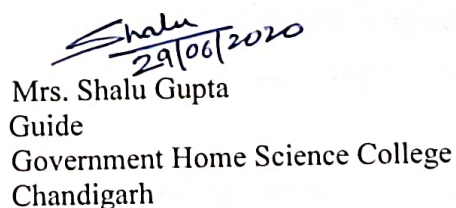 Shalu
29/06/2020
Mrs. Shalu Gupta
Guide
Government Home Science College
Chandigarh